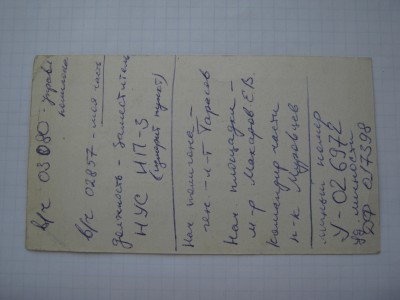 в/ч 03080 - управл.
полигона
в/ч 02857 - моя часть
Должность - Заместитель
НУС ИП-3
(измерит. пункт)
Нач полигона -
ген - л-т Тарасов
Нач площадки -
м-р Макаров Е.В.
Командир части
п-к Муровцев
личный номер
У-026972
уд. личности
017398